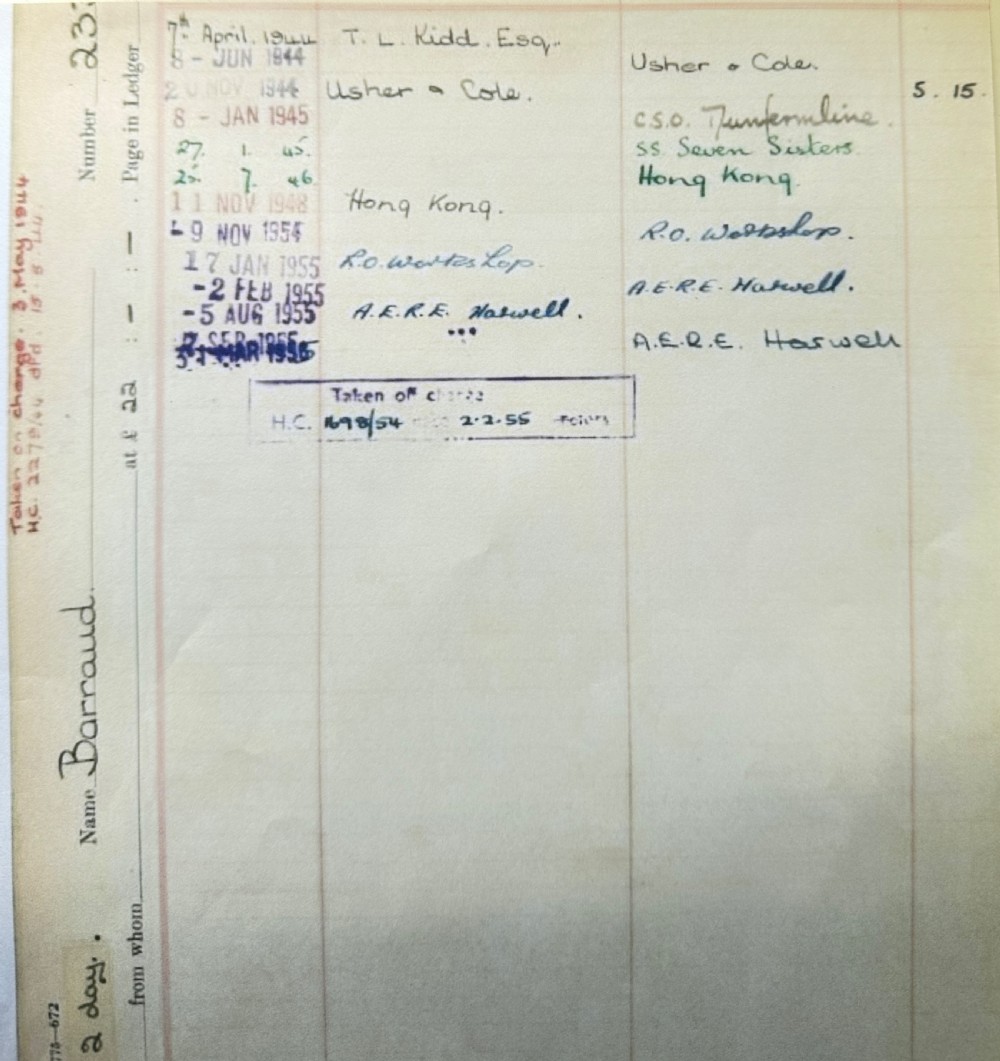 7th April. 1944 T. L. Kidd. Esq.
8 - JUN 1944 Usher & Cole.
20 NOV 1944 Usher & Cole. 5. 15.
8 - JAN 1945 C.S.O. Dunfermline.
27. 1. 45. SS. Seven Sisters.
25. 7. 46. Hong Kong.
11 NOV 1948 Hong Kong.
- 9 NOV 1954 R.O. Workshop.
17 JAN 1955 R.O. Workshop.
- 2 FEB 1955 A.E.R.E. Harwell.
- 5 AUG 1955 A.E.R.E. Harwell.
SEP 1955 A.E.R.E. Harwell
MAR 1956
Taken off charge
H.C. 1698/54 2.2.55
Taken on charge. 3. May 1944
H.C. 2278/44 dfd. 15. 5. 44.
775—672
2 day.
Name Barraud. Number 23
from whom at £ 22 : — : — . Page in Ledger